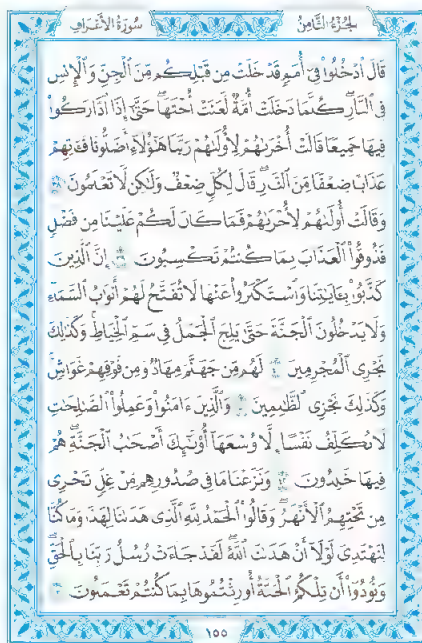 الجزء الثامن
سورة الأعراف
قَالَ ٱدۡخُلُواْ فِيٓ أُمَمٖ قَدۡ خَلَتۡ مِن قَبۡلِكُم مِّنَ ٱلۡجِنِّ وَٱلۡإِنسِ
فِي ٱلنَّارِۖ كُلَّمَا دَخَلَتۡ أُمَّةٞ لَّعَنَتۡ أُخۡتَهَاۖ حَتَّىٰٓ إِذَا ٱدَّارَكُواْ
فِيهَا جَمِيعٗا قَالَتۡ أُخۡرَىٰهُمۡ لِأُولَىٰهُمۡ رَبَّنَا هَٰٓؤُلَآءِ أَضَلُّونَا فَـَٔاتِهِمۡ
عَذَابٗا ضِعۡفٗا مِّنَ ٱلنَّارِۖ قَالَ لِكُلّٖ ضِعۡفٞ وَلَٰكِن لَّا تَعۡلَمُونَ ٣٨
وَقَالَتۡ أُولَىٰهُمۡ لِأُخۡرَىٰهُمۡ فَمَا كَانَ لَكُمۡ عَلَيۡنَا مِن فَضۡلٖ
فَذُوقُواْ ٱلۡعَذَابَ بِمَا كُنتُمۡ تَكۡسِبُونَ ٣٩ إِنَّ ٱلَّذِينَ
كَذَّبُواْ بِـَٔايَٰتِنَا وَٱسۡتَكۡبَرُواْ عَنۡهَا لَا تُفَتَّحُ لَهُمۡ أَبۡوَٰبُ ٱلسَّمَآءِ
وَلَا يَدۡخُلُونَ ٱلۡجَنَّةَ حَتَّىٰ يَلِجَ ٱلۡجَمَلُ فِي سَمِّ ٱلۡخِيَاطِۚ وَكَذَٰلِكَ
نَجۡزِي ٱلۡمُجۡرِمِينَ ٤٠ لَهُم مِّن جَهَنَّمَ مِهَادٞ وَمِن فَوۡقِهِمۡ غَوَاشٖۚ
وَكَذَٰلِكَ نَجۡزِي ٱلظَّٰلِمِينَ ٤١ وَٱلَّذِينَ ءَامَنُواْ وَعَمِلُواْ ٱلصَّٰلِحَٰتِ
لَا نُكَلِّفُ نَفۡسًا إِلَّا وُسۡعَهَآ أُوْلَٰٓئِكَ أَصۡحَٰبُ ٱلۡجَنَّةِۖ هُمۡ
فِيهَا خَٰلِدُونَ ٤٢ وَنَزَعۡنَا مَا فِي صُدُورِهِم مِّنۡ غِلّٖ تَجۡرِي
مِن تَحۡتِهِمُ ٱلۡأَنۡهَٰرُۖ وَقَالُواْ ٱلۡحَمۡدُ لِلَّهِ ٱلَّذِي هَدَىٰنَا لِهَٰذَا وَمَا كُنَّا
لِنَهۡتَدِيَ لَوۡلَآ أَنۡ هَدَىٰنَا ٱللَّهُۖ لَقَدۡ جَآءَتۡ رُسُلُ رَبِّنَا بِٱلۡحَقِّۖ
وَنُودُوٓاْ أَن تِلۡكُمُ ٱلۡجَنَّةُ أُورِثۡتُمُوهَا بِمَا كُنتُمۡ تَعۡمَلُونَ ٤٣
١٥٥